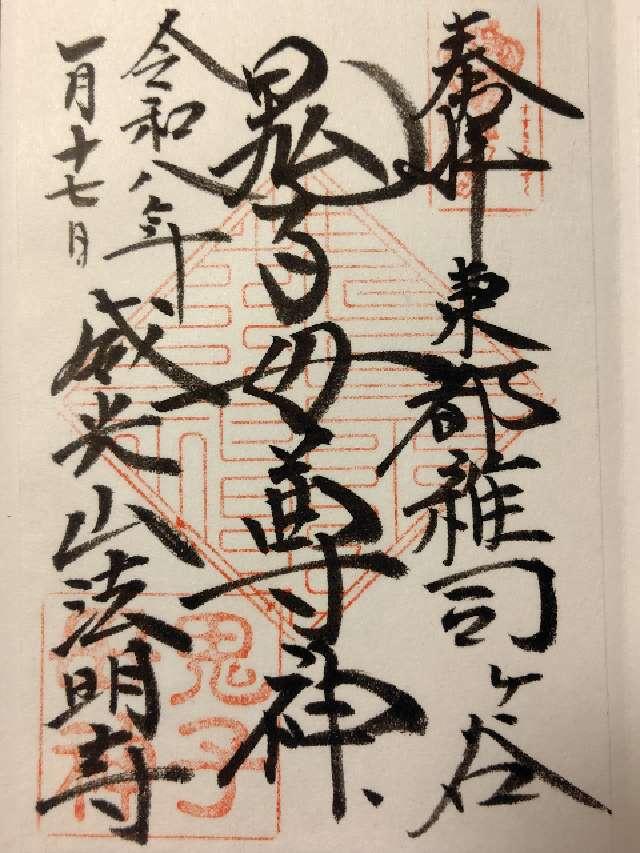 奉拝 東都雑司ヶ谷
鬼子母尊神
令和八年
一月十七日
威光山法明寺
鬼子
母神